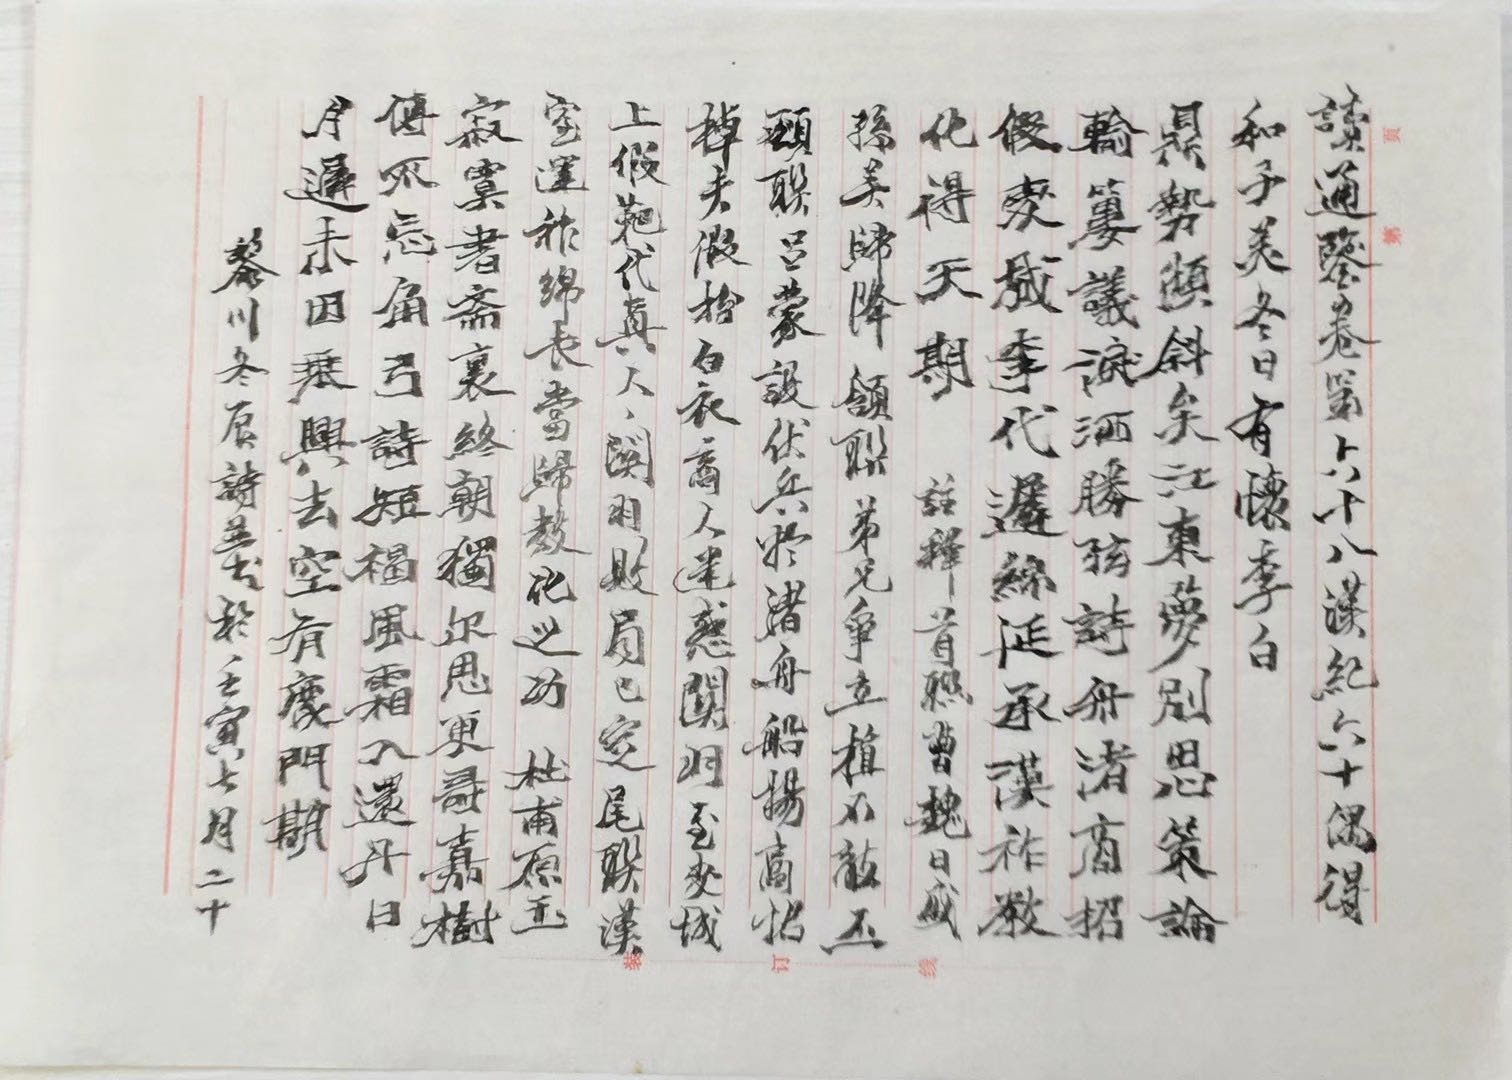 讀通鑒卷第六十八漢紀六十偶得
和子美冬日有懷李白
鼎勢傾斜矣江東夢別思策論
輸篡議淚洒勝孩詩舟渚商招
假麥城季代遷綿延承漢祚教
化得天期 註釋 首聯曹魏日盛
孫吳歸降 頷聯弟兄爭立植不敵丕
頸聯呂蒙設伏兵於渚舟船揚商招
棹夫假扮白衣商人迷惑關羽至麥城
上假範代真人關羽敗局已定尾聯漢
室運祚綿長當歸教化之功 杜甫原玉
寂寞書齋裏終朝獨尔思更尋嘉樹
傳不忘角弓詩短褐風霜入還丹日
月遲未因乘興去空有鹿門期
馨川冬辰詩并書於壬寅七月二十
頁 第
裝 訂 线